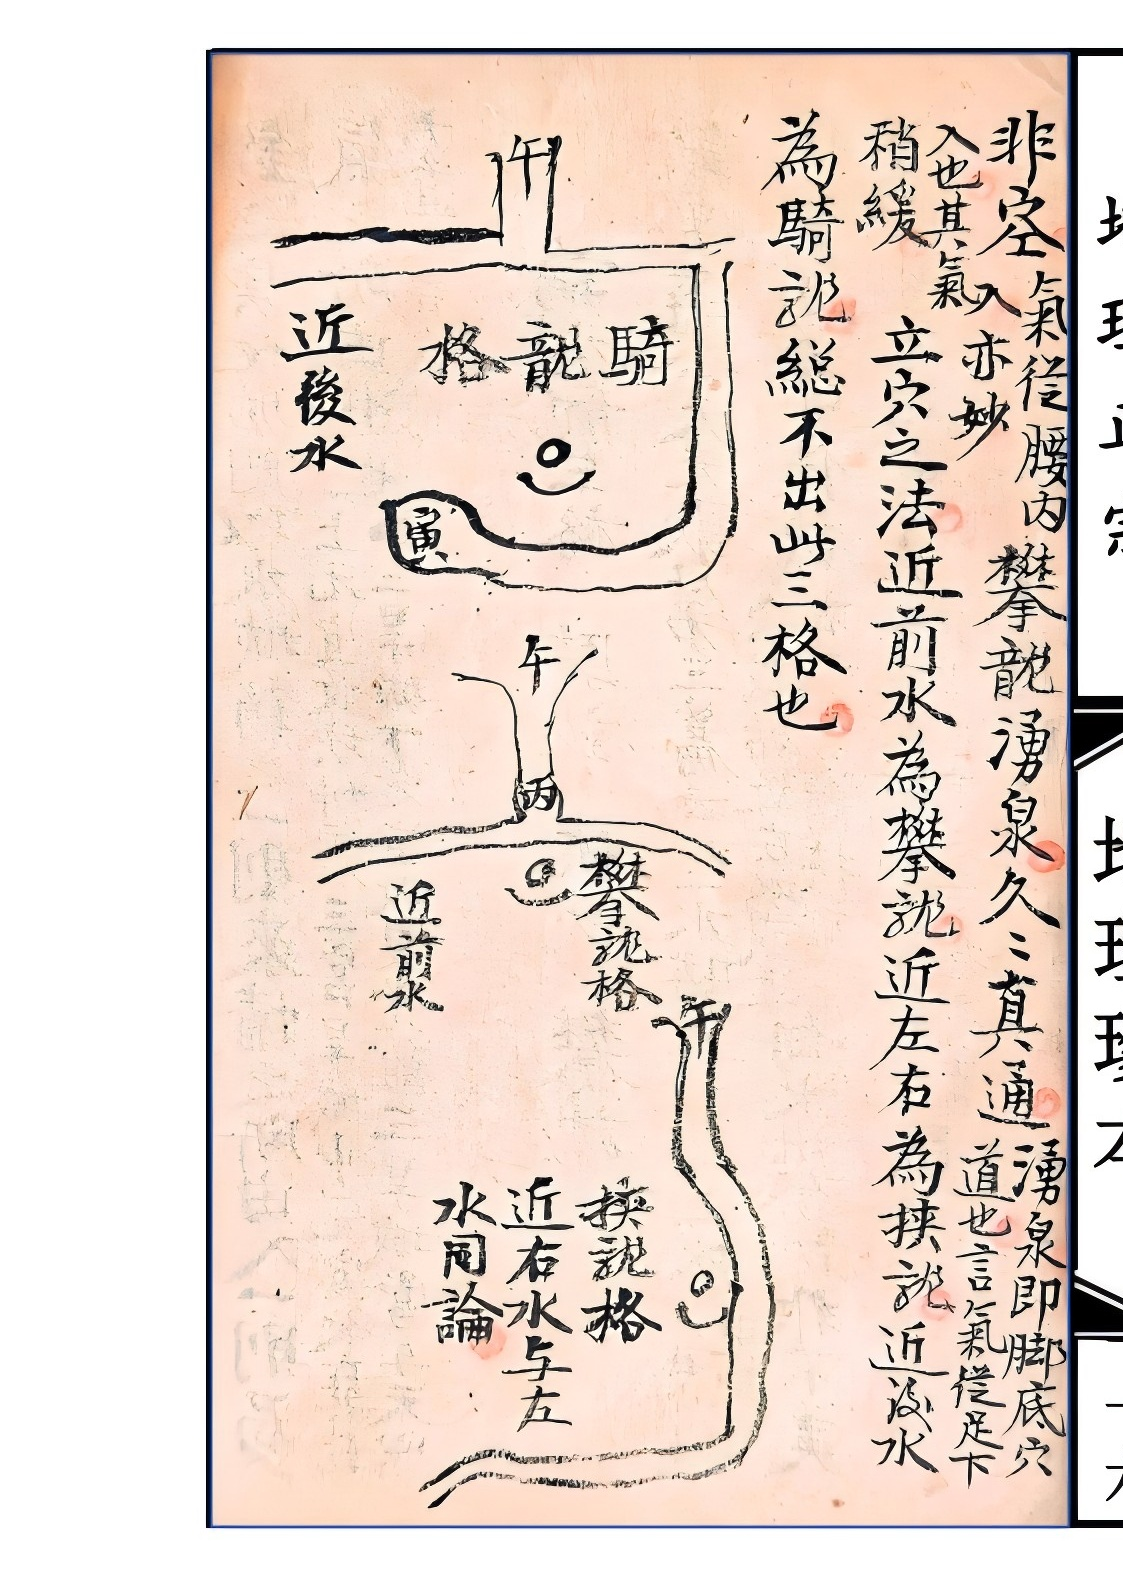 非空
氣從腰内
入亦妙
攀龍湧泉久〻真通
湧泉即脚底穴
道也言氣從足下
入也其氣
稍緩
立穴之法近前水為攀龍近左右為挟龍近後水
為騎龍總不出此三格也
午
騎龍格
近後水
寅
午
丙
攀龍格
近前水
午
挟龍格
近右水与左
水同論